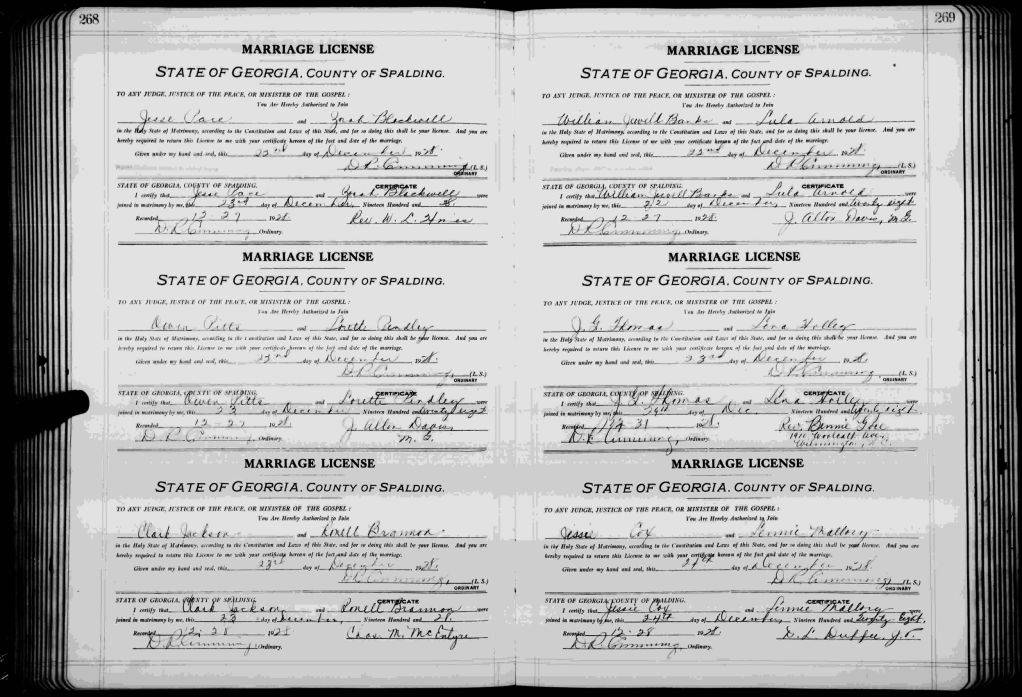 268
MARRIAGE LICENSE
STATE OF GEORGIA, COUNTY OF SPALDING.
TO ANY JUDGE, JUSTICE OF THE PEACE, OR MINISTER OF THE GOSPEL:
You Are Hereby Authorized to Join
Jesse Pace and Zorah Blackwell
in the Holy State of Matrimony, according to the Constitution and Laws of this State, and for so doing this shall be your license. And you are
hereby required to return this License to me with your certificate hereon of the fact and date of the marriage.
Given under my hand and seal, this 22nd day of December 1928.
D. R. Cumming (L. S.)
ORDINARY
STATE OF GEORGIA, COUNTY OF SPALDING. CERTIFICATE
I certify that Jesse Pace and Zorah Blackwell were
joined in matrimony by me, 23rd day of December, Nineteen Hundred and 28.
Recorded 12-27 1928. Rev. W. L.
D. R. Cumming Ordinary.
MARRIAGE LICENSE
STATE OF GEORGIA, COUNTY OF SPALDING.
TO ANY JUDGE, JUSTICE OF THE PEACE, OR MINISTER OF THE GOSPEL:
You Are Hereby Authorized to Join
Owen Pitts and Lorette Pindley
in the Holy State of Matrimony, according to the Constitution and Laws of this State, and for so doing this shall be your license. And you are
hereby required to return this License to me with your certificate hereon of the fact and date of the marriage.
Given under my hand and seal, this 22nd day of December 1928.
D. R. Cumming, (L. S.)
ORDINARY
STATE OF GEORGIA, COUNTY OF SPALDING. CERTIFICATE
I certify that Owen Pitts and Lorette Pindley were
joined in matrimony by me, this 23 day of December Nineteen Hundred and twenty eight
Recorded 12-27 1928. J. Alton Davis,
D. R. Cumming Ordinary. M. G.
MARRIAGE LICENSE
STATE OF GEORGIA, COUNTY OF SPALDING.
TO ANY JUDGE, JUSTICE OF THE PEACE, OR MINISTER OF THE GOSPEL:
You Are Hereby Authorized to Join
Clark Jackson and Ronell Brannon
in the Holy State of Matrimony, according to the Constitution and Laws of this State, and for so doing this shall be your license. And you are
hereby required to return this License to me with your certificate hereon of the fact and date of the marriage.
Given under my hand and seal, this 23rd day of December 1928.
D. R. Cumming, (L. S.)
ORDINARY
STATE OF GEORGIA, COUNTY OF SPALDING. CERTIFICATE
I certify that Clark Jackson, and Ronell Brannon were
joined in matrimony by me, this 23 day of December, Nineteen Hundred and 28.
Recorded 12-28 1928 Chas. M. McEntyre
D. R. Cumming, Ordinary.
269
MARRIAGE LICENSE
STATE OF GEORGIA, COUNTY OF SPALDING.
TO ANY JUDGE, JUSTICE OF THE PEACE, OR MINISTER OF THE GOSPEL:
You Are Hereby Authorized to Join
William Jewell Banks and Lula Arnold
in the Holy State of Matrimony, according to the Constitution and Laws of this State, and for so doing this shall be your license. And you are
hereby required to return this License to me with your certificate hereon of the fact and date of the marriage.
Given under my hand and seal, this 22nd day of December 1928.
D. R. Cumming (L. S.)
ORDINARY
STATE OF GEORGIA, COUNTY OF SPALDING. CERTIFICATE
I certify that William Jewell Banks and Lula Arnold were
joined in matrimony by me, this 22 day of December, Nineteen Hundred and twenty eight
Recorded 12-27 1928. J. Alton Davis, M. G.
D. R. Cumming, Ordinary.
MARRIAGE LICENSE
STATE OF GEORGIA, COUNTY OF SPALDING.
TO ANY JUDGE, JUSTICE OF THE PEACE, OR MINISTER OF THE GOSPEL:
You Are Hereby Authorized to Join
J. G. Thomas and Lena Holley
in the Holy State of Matrimony, according to the Constitution and Laws of this State, and for so doing this shall be your license. And you are
hereby required to return this License to me with your certificate hereon of the fact and date of the marriage.
Given under my hand and seal, this 23rd day of December 1928.
D. R. Cumming, (L. S.)
ORDINARY
STATE OF GEORGIA, COUNTY OF SPALDING. CERTIFICATE
I certify that J. G. Thomas and Lena Holley were
joined in matrimony by me, this 29th day of Dec. Nineteen Hundred and twenty eight
Recorded 12-31 1928. Rev. Bennie Gore
D. R. Cumming, Ordinary. 1911 Woolcott Ave.
Wilmington, N. C.
MARRIAGE LICENSE
STATE OF GEORGIA, COUNTY OF SPALDING.
TO ANY JUDGE, JUSTICE OF THE PEACE, OR MINISTER OF THE GOSPEL:
You Are Hereby Authorized to Join
Jessie Cox and Linnie Mallory
in the Holy State of Matrimony, according to the Constitution and Laws of this State, and for so doing this shall be your license. And you are
hereby required to return this License to me with your certificate hereon of the fact and date of the marriage.
Given under my hand and seal, this 24th day of December 1928.
D. R. Cumming, (L. S.)
ORDINARY
STATE OF GEORGIA, COUNTY OF SPALDING. CERTIFICATE
I certify that Jessie Cox and Linnie Mallory were
joined in matrimony by me, this 24th day of December, Nineteen Hundred and twenty eight.
Recorded 12-28 1928. J. P.
D. R. Cumming, Ordinary.